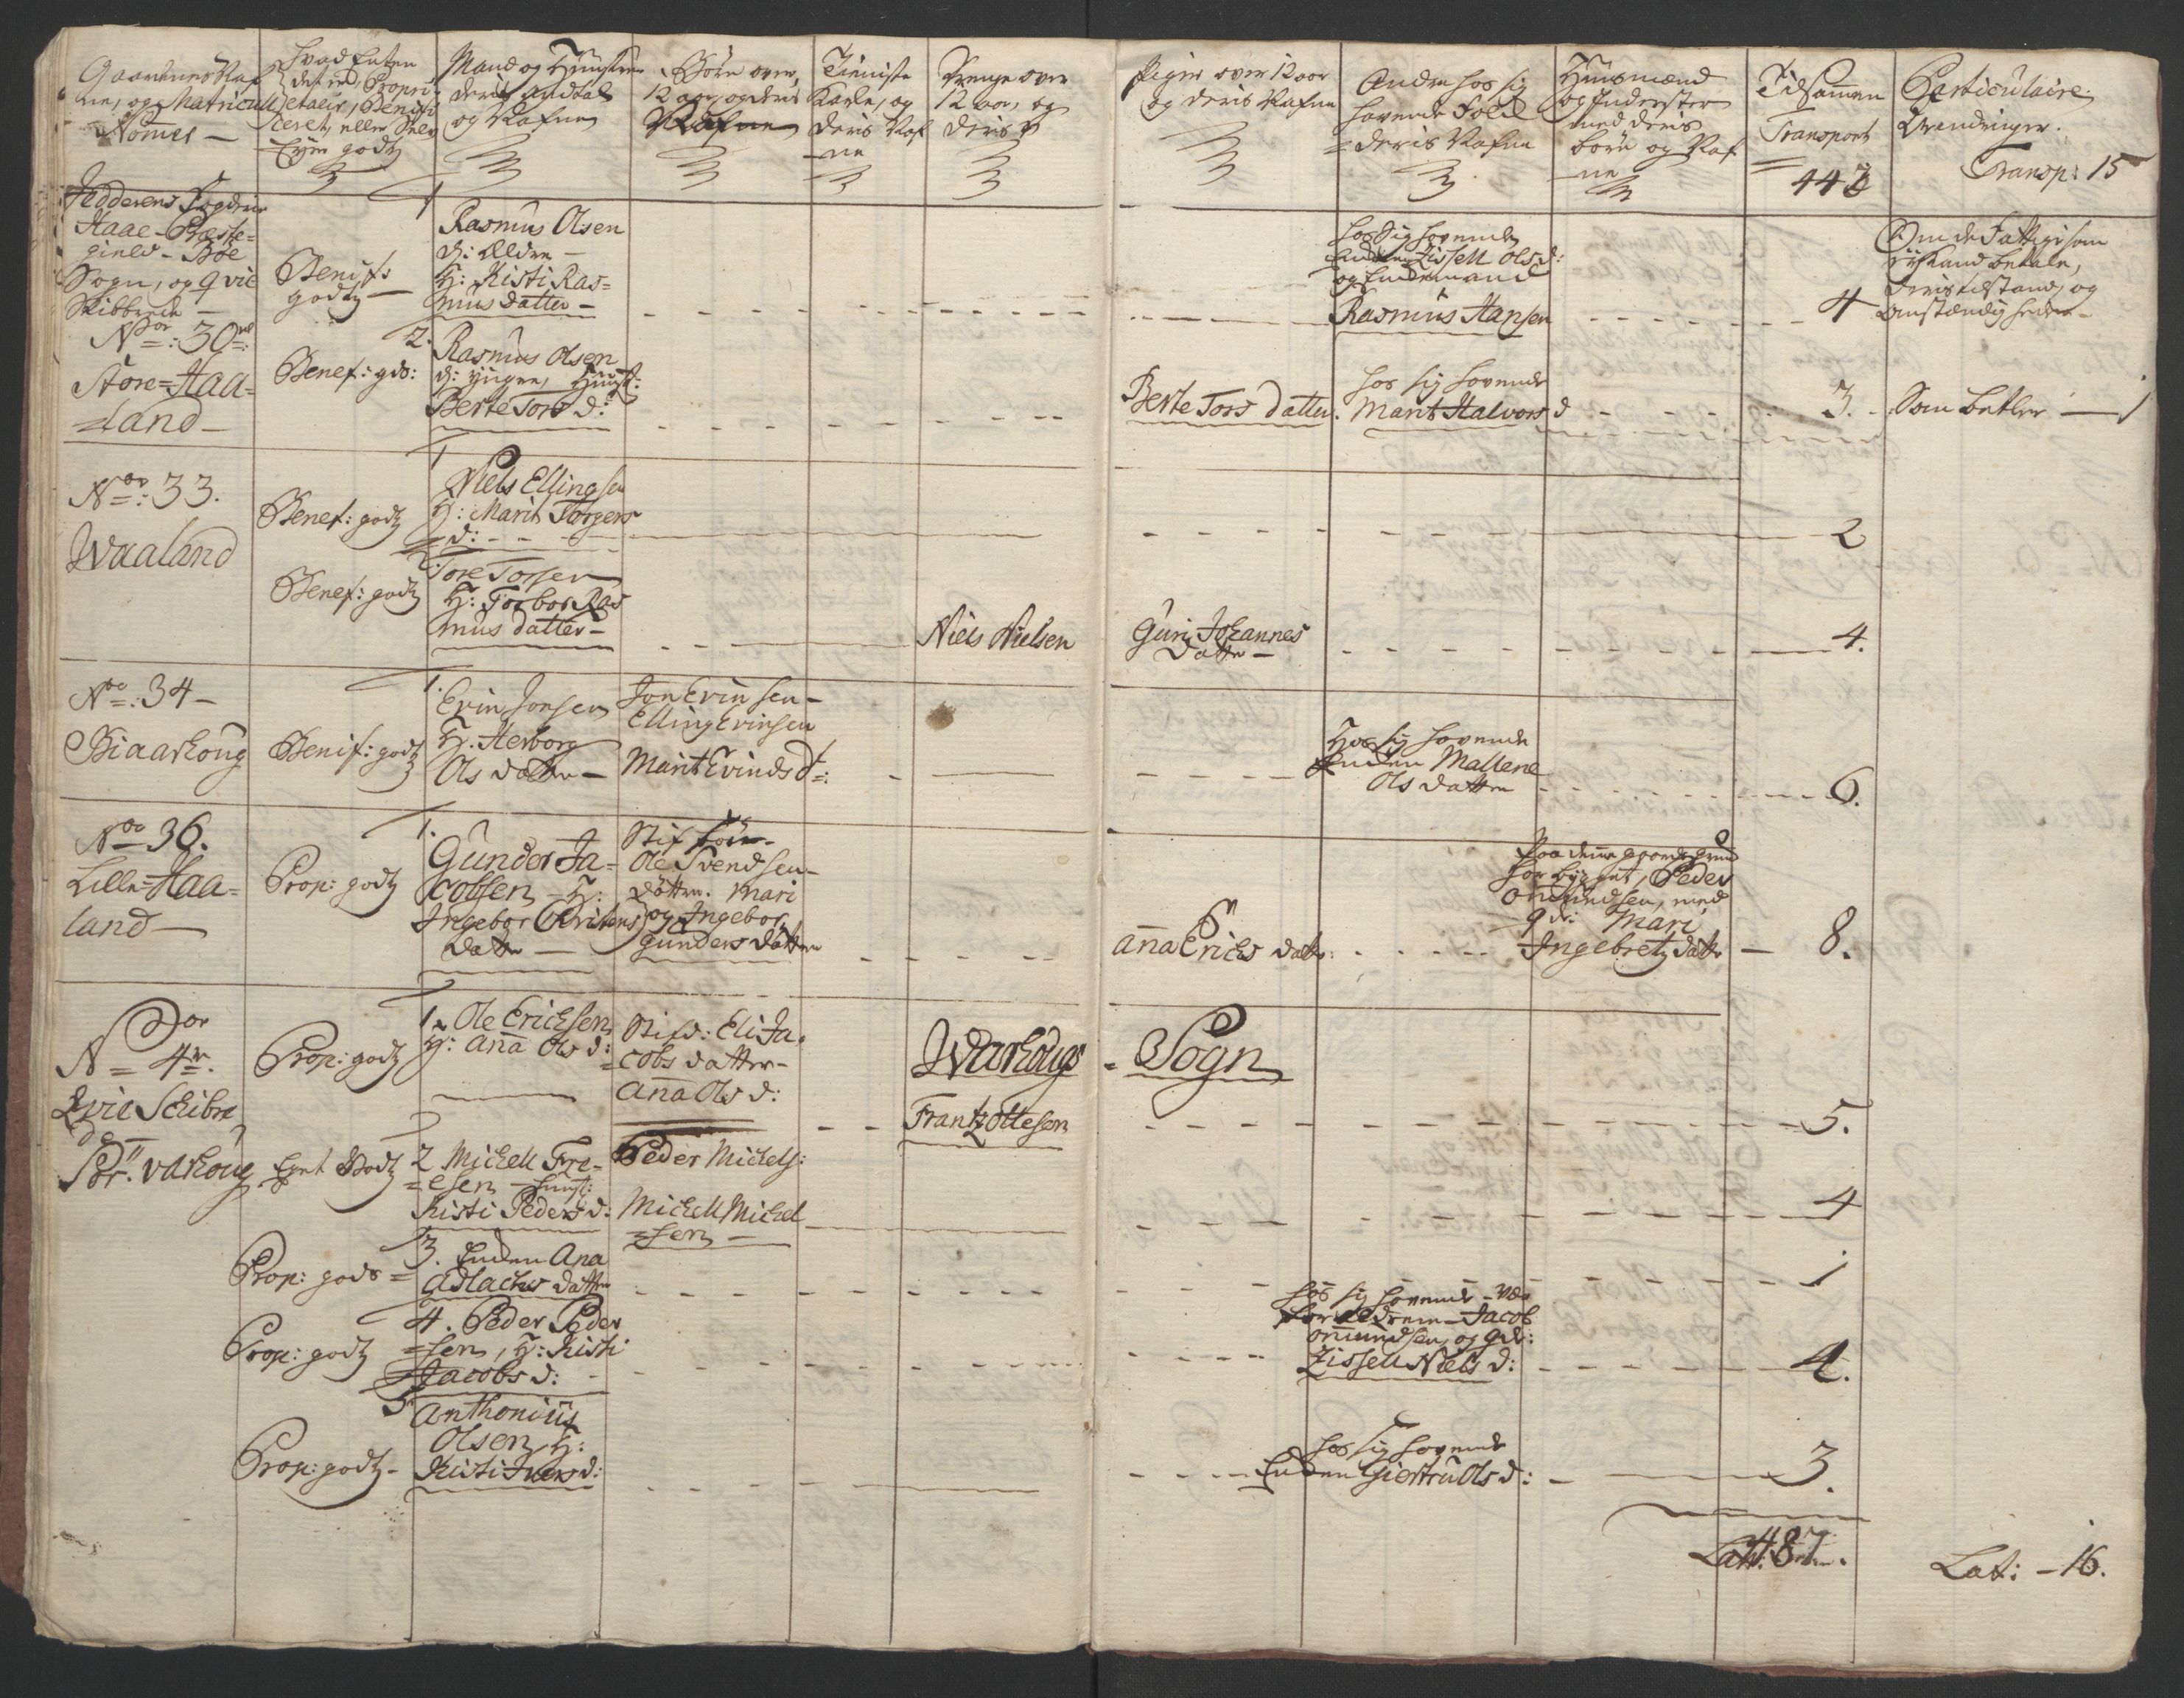 Gaardenes Naf
ne, og Matricul
Nomer —
Hvad Enten
det er Propri
etair, Benefi
ceret, eller Selv
Eyer godz
Mand og Hunstru
deris Andtal
og Nafne
Børn over,
12 aar, og deris
Nafne
Tieniste
Karle, og
deris Naf
-ne
Drenge over
12 aar, og
deris
Piger over 12 aar
og deris Nafne
Anden hos sig
havende Folk
deris Nafne
Huusmænd
og Inderster
med deris
børn og Naf
-ne
Tilsammen
Transport
442
Particulaire
Anmdninger.
Transp: 15
Jedderens Fogderie
Haae - Præste-
gield - Bøe
Sogn, og Qvie
Skibbrede —
No: 30
Store-Haa-
land —
Benif:
godz —
1
Rasmus Olsen
d: Eldre —
H: Kisti Ras-
mus datter —
hos sig havende
Enken Zissell Ols d:
og Enkemand
Rasmus Hansen
4
Om de Fattige som
iche kand betale,
deris tilstand, og
omstændigheder —
Benef: gds:
2.
Rasmus Olsen
d: yngre, Hust:
Berte Tors d:
Berte Tors datter.
hos sig havende
Marit Halvors d
3.
Som betler — 1
No: 33.
Waaland
Benef: godz
1
Niels Ellingsen
H: Marit Torgers
d:
2
Benef: godz
2.
Tore Torsen
H: Torbor Ras
mus datter —
Niels Nielsen
Guri Johannes
datter —
4.
No: 34 —
Biaarhoug
Benif: godz
1.
Evin Jonsen
H. Herborg
Ols datter —
Jon Evinsen —
Elling Evinsen
Marit Evinds d:
Hos sig havende
Enken Mallene
Ols datter
6.
No 36.
Lille-Haa-
land —
Prop: godz
1.
Gunder Ja-
cobsen — H:
Ingebor
datter —
Stif børn —
Ole Svendsen —
døttre. Mari
og Ingebor
Gunders døttre
Anna Erichs datter:
Paa denne gaards grund
har bygget, Peder
Omundsen, med
qv: Mari
Ingebretz datter
8.
Warhougs - Sogn
No 4
Qvie Schibre
de —
Nr: Varhoug
Prop: godz
1 Ole Erichsen
H: Ana Ols d:
Stifd: Eli Ja-
cobs datter —
Ana Ols d:
Frantz Ottesen
5.
Eget Godz
2 Michell Fre-
-esen — hust:
Kisti Peders d:
Peder Michels:
Michell Michel
-sen —
4
Prop: gods =
3. Enken Ana
Adlachs datter
1
Prop: godz
4. Peder Peder
-sen, H: Kisti
Jacobs d:
hos sig havende - vær
forældrene - Jacob
Omundsen, og qv:
Zissell Niels d:
4.
Prop: godz —
5
Anthonius
Olsen, H:
Kisti Ivers d:
hos sig havende
Enken Giertru Ols d:
3.
Lat: 487.
Lat: — 16.